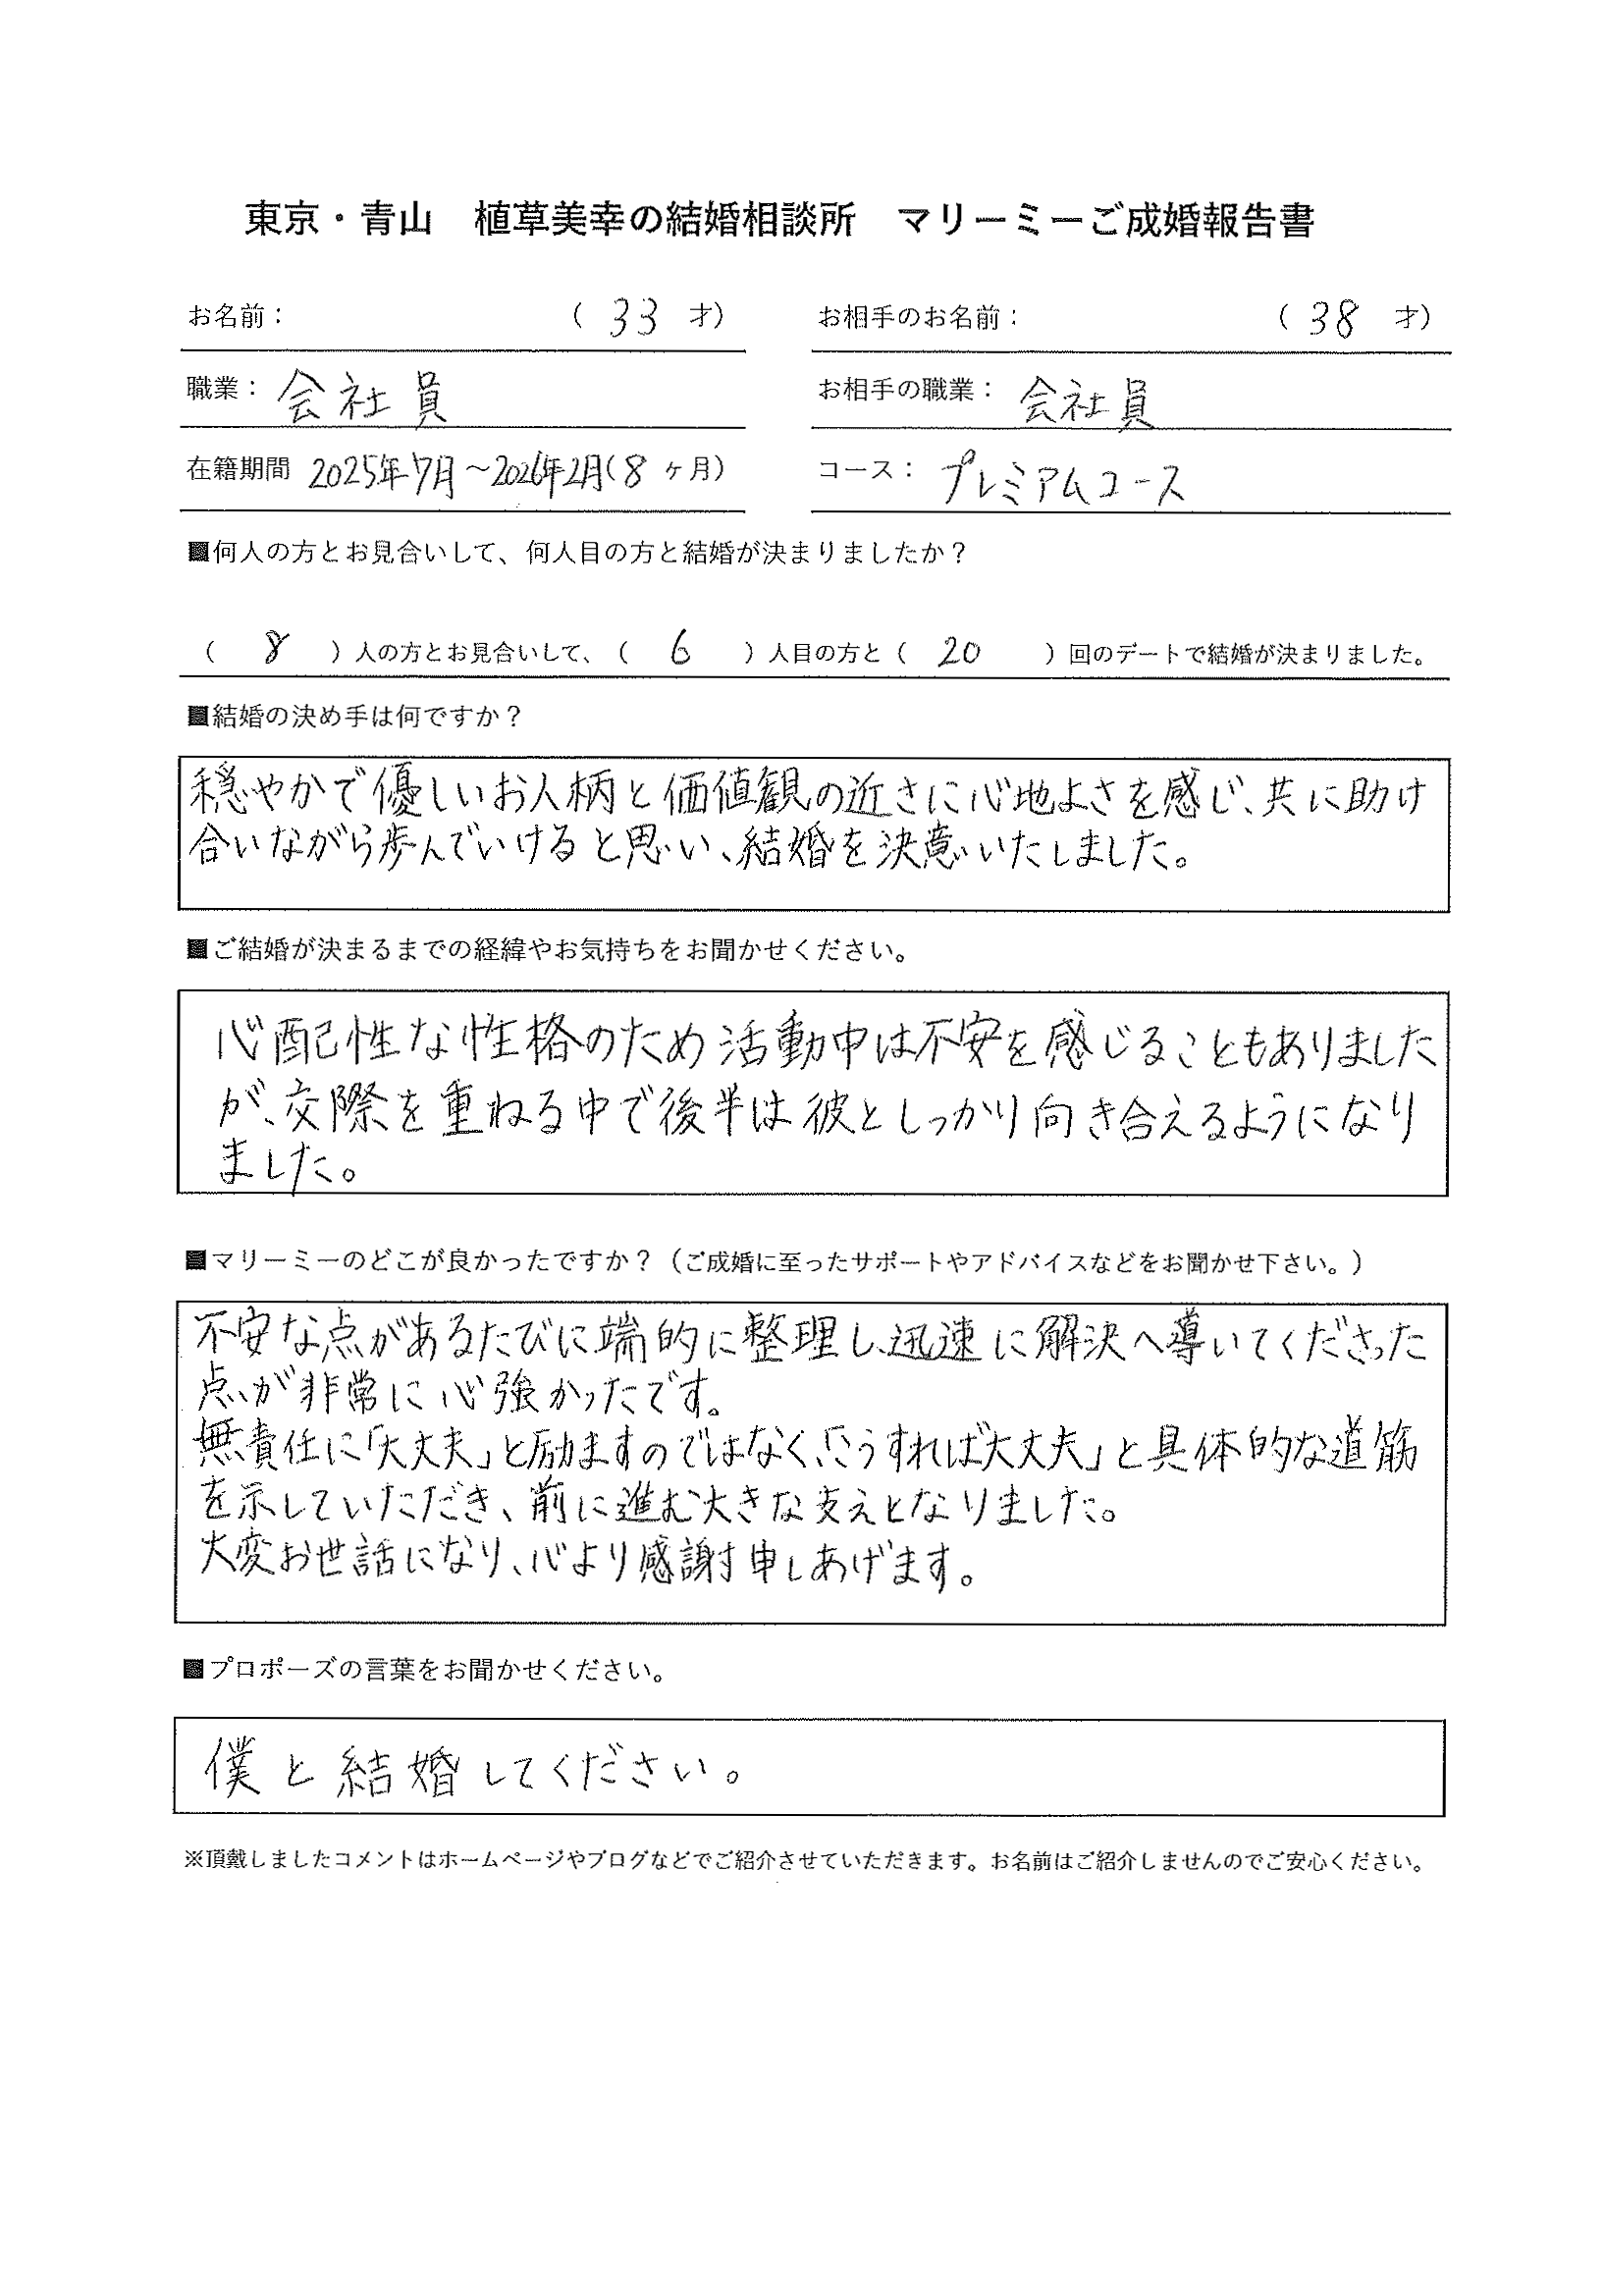 東京・青山　植草美幸の結婚相談所　マリーミーご成婚報告書
お名前：　（ 33 才）　お相手のお名前：　（ 38 才）
職業： 会社員　お相手の職業： 会社員
在籍期間 2025年7月～2026年2月（8 ヶ月）　コース： プレミアムコース
■何人の方とお見合いして、何人目の方と結婚が決まりましたか？
（ 8 ）人の方とお見合いして、（ 6 ）人目の方と（ 20 ）回のデートで結婚が決まりました。
■結婚の決め手は何ですか？
穏やかで優しいお人柄と価値観の近さに心地よさを感じ、共に助け
合いながら歩んでいけると思い、結婚を決意いたしました。
■ご結婚が決まるまでの経緯やお気持ちをお聞かせください。
心配性な性格のため活動中は不安を感じることもありました
が、交際を重ねる中で後半は彼としっかり向き合えるようになり
ました。
■マリーミーのどこが良かったですか？（ご成婚に至ったサポートやアドバイスなどをお聞かせ下さい。）
不安な点があるたびに端的に整理し、迅速に解決へ導いてくださった
点が非常に心強かったです。
無責任に「大丈夫」と励ますのではなく、「こうすれば大丈夫」と具体的な道筋
を示していただき、前に進む大きな支えとなりました。
大変お世話になり、心より感謝申しあげます。
■プロポーズの言葉をお聞かせください。
僕と結婚してください。
※頂戴しましたコメントはホームページやブログなどでご紹介させていただきます。お名前はご紹介しませんのでご安心ください。